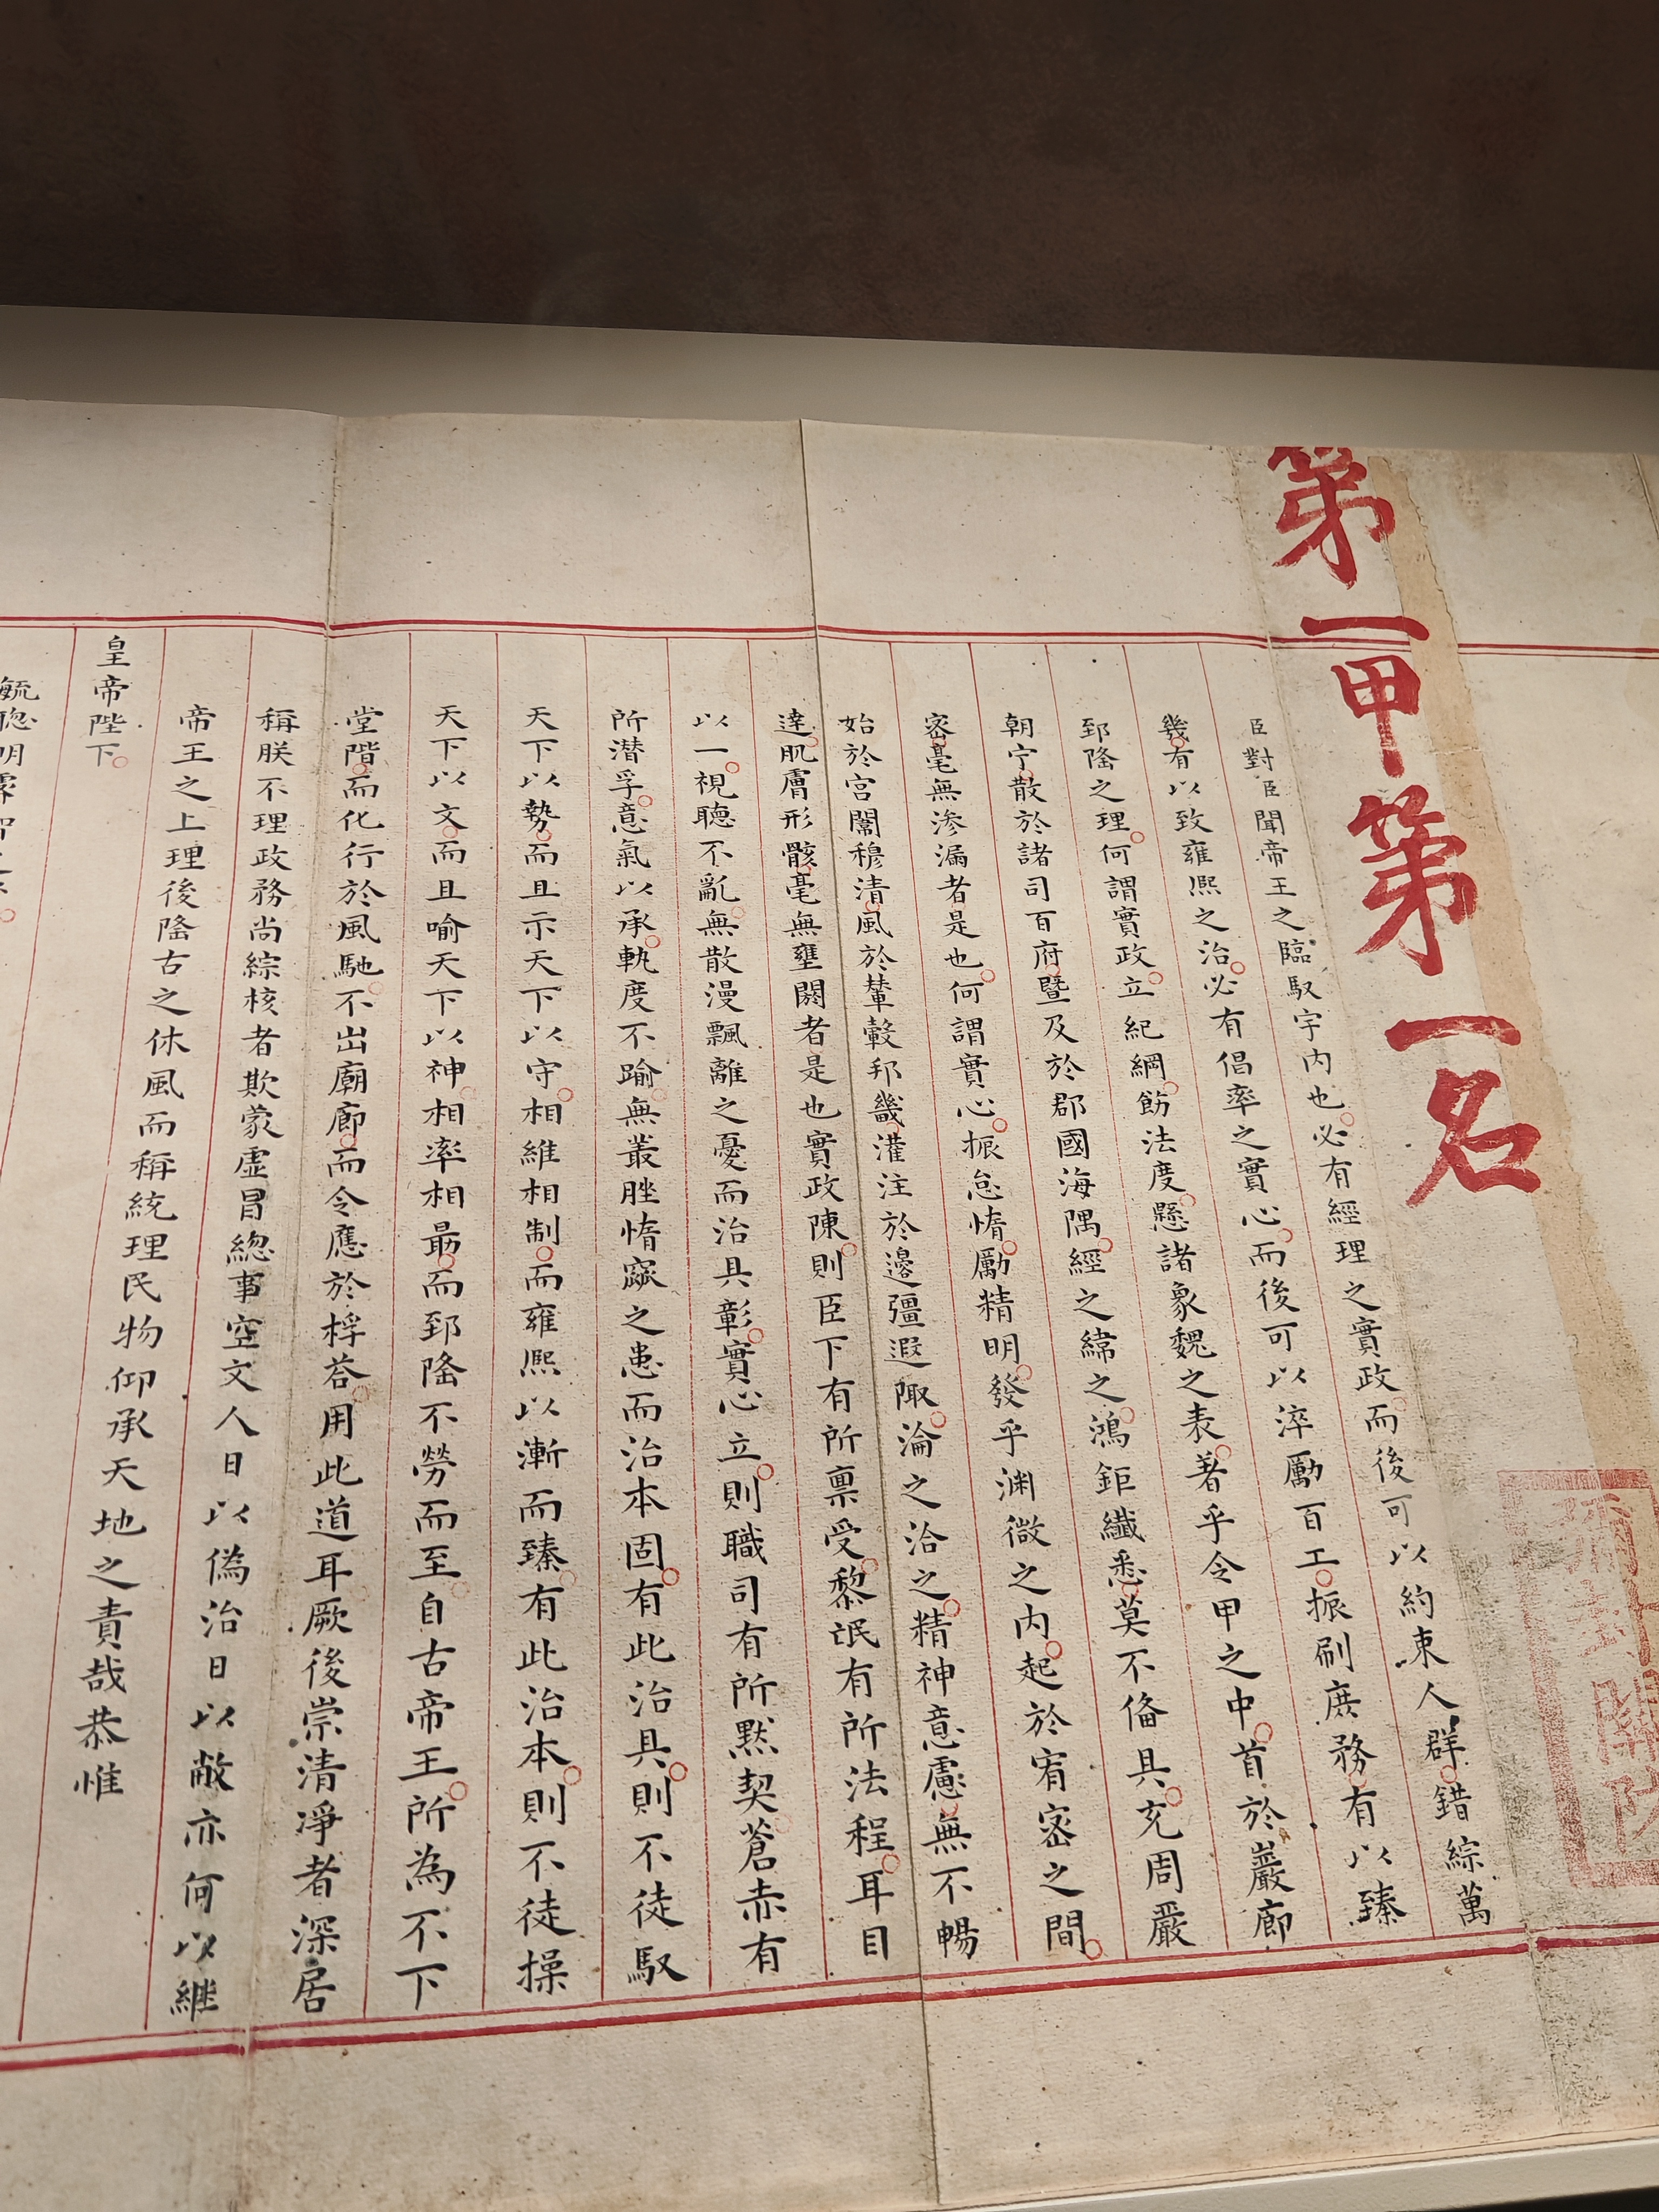 第一甲第一名
彌封關防
臣對臣聞帝王之臨馭宇內也必有經理之實政而後可以約束人群錯綜萬
幾有以致雍熙之治必有倡率之實心而後可以淬勵百工振刷庶務有以臻
郅隆之理何謂實政立紀綱飭法度懸諸象魏之表著乎令甲之中首於巖廊
朝宁散於諸司百府暨及於郡國海隅經之緯之鴻鉅纖悉莫不備具充周嚴
密毫無滲漏者是也何謂實心振怠惰勵精明發乎淵微之內起於宥密之間
始於宮闈穆清風於輦轂邦畿灌注於邊疆遐陬淪之洽之精神意慮無不暢
達肌膚形骸毫無壅閼者是也實政陳則臣下有所稟受黎氓有所法程耳目
以一視聽不亂無散漫飄離之憂而治具彰實心立則職司有所默契蒼赤有
所潛孚意氣以承軌度不踰無叢脞惰窳之患而治本固有此治具則不徒馭
天下以勢而且示天下以守相維相制而雍熙以漸而臻有此治本則不徒操
天下以文而且喻天下以神相率相最而郅隆不勞而至自古帝王所為不下
堂階而化行於風馳不出廟廊而令應於桴荅用此道耳厥後崇清淨者深居
稱朕不理政務尚綜核者欺蒙虛冒總事空文人日以偽治日以敝亦何以繼
帝王之上理後隆古之休風而稱統理民物仰承天地之責哉恭惟
皇帝陛下